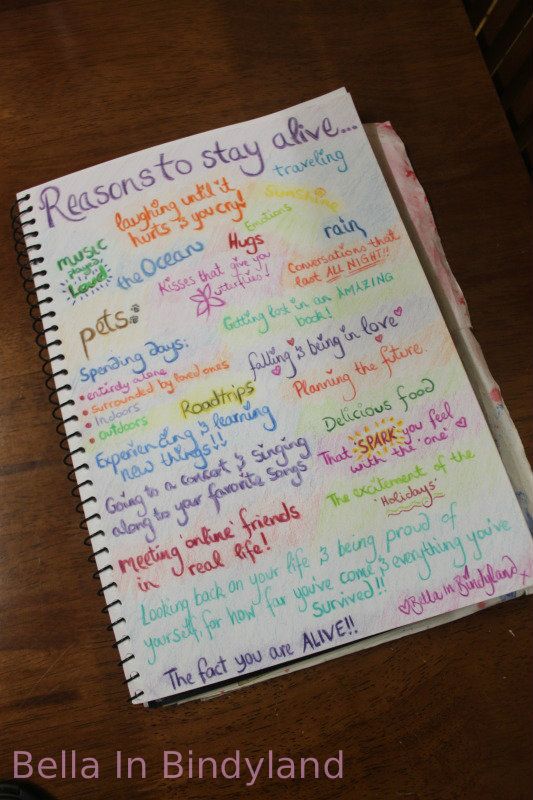 Reasons to stay alive...
traveling
laughing until it
hurts & you cry!
Sunshine
Emotions
music
played
Loud
the Ocean
Hugs
rain
Kisses that give you
butterflies!
Conversations that
last ALL NIGHT!!
pets.
Getting lost in an AMAZING
book!
Spending days:
• entirely alone
• surrounded by loved ones
• Indoors
• outdoors
falling & being in love
Roadtrips
Planning the future.
Experiencing & learning
new things!!
Delicious food
That SPARK you feel
with the 'one'
Going to a concert & singing
along to your favorite songs
The excitement of the
'Holidays'
Meeting 'online' friends
in real life!
Looking back on your life & being proud of
yourself, for how far you've come & everything you've
survived!!
Bella In Bindyland x
The fact you are ALIVE!!
Bella In Bindyland